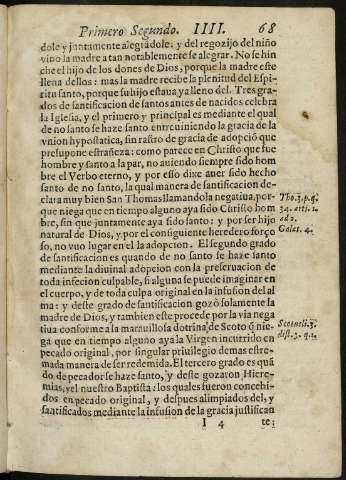 Primero Segundo. IIII. 68
dole y juntamente alegrãdole: y del regozijo del niño
vino la madre a tan notablemente se alegrar. No se hin
che el hijo de los dones de Dios, porque la madre este
llena dellos: mas la madre recibe la plenitud del Espi-
ritu santo, porque su hijo estaua ya lleno del. Tres gra-
dos de santificacion de santos antes de nacidos celebra
la Iglesia, y el primero y principal es mediante el qual
de no santo se haze santo entreuiniendo la gracia de la
vnion hypostatica, sin rastro de gracia de adopciõ que
presupone estrañeza: como parece en Christo que fue
hombre y santo a la par, no auiendo siempre sido hom
bre el Verbo eterno, y por esso dixe auer sido hecho
santo de no santo, la qual manera de santificacion de-
clara muy bien San Thomas llamandola negatiua, por-
que niega que en tiempo alguno aya sido Christo hom
bre, sin que juntamente aya sido santo: y por ser hijo
natural de Dios, y por el consiguiente heredero forço
so, no vuo lugar en el la adopcion. El segundo grado
de santificacion es quando de no santo se haze santo
mediante la diuinal adopcion con la preseruacion de
toda infecion culpable, si alguna se puede imaginar en
el cuerpo, y de toda culpa original en la infusion del al
ma: y deste grado de santificacion gozò solamente la
madre de Dios, y tambien este procede por la via nega
tiua conforme a la marauillosa dotrina de Scoto q̃ nie-
ga que en tiempo alguno aya la Virgen incurrido en
pecado original, por singular priuilegio demas estre-
mada manera de ser redemida. El tercero grado es quã
do de pecador se haze santo, y deste gozaron Hiere-
mias, y el nuestro Baptista: los quales fueron concebi-
dos en pecado original, y despues alimpiados del, y
santificados mediante la infusion de la gracia justifican
I 4 te:
Tho. 3. p. q.
34. arti. 1.
ad 2.
Galat. 4.
dist. 3. q. 1.